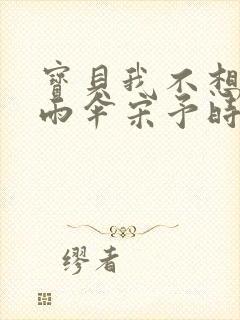 寶貝我不想
雨傘宋予時
繆者